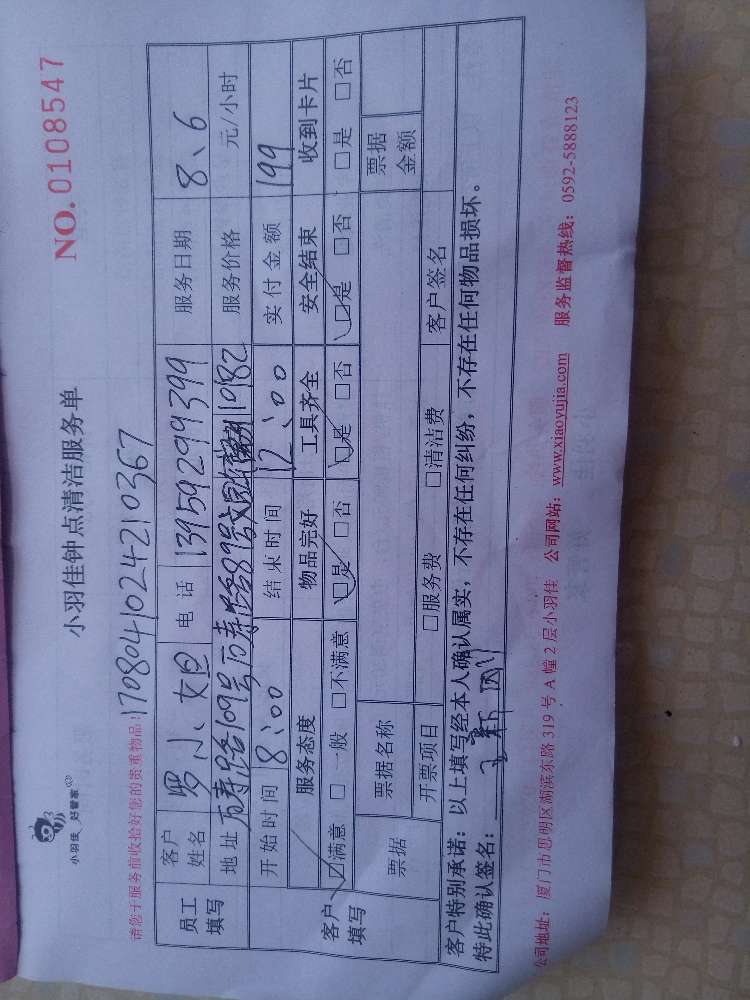 小羽佳 好管家
小羽佳钟点清洁服务单
NO. 0108547
请您于服务前收拾好您的贵重物品!
1708041024210367
员工填写
客户姓名 罗小、文旦 电话 13959299399 服务日期 8、6
地址 万寿路109号万寿路89号 1082 服务价格 元/小时
开始时间 8:00 结束时间 12:00 实付金额 199
客户填写
服务态度 物品完好 工具齐全 安全结束 收到卡片
☑满意 □一般 □不满意 ☑是 □否 ☑是 □否 ☑是 □否 □是 □否
票据 票据名称 票据金额
开票项目 □服务费 □清洁费 客户签名
客户特别承诺：以上填写经本人确认属实，不存在任何纠纷，不存在任何物品损坏。
特此确认签名：
公司地址：厦门市思明区湖滨东路 319 号 A 幢 2 层小羽佳 公司网站：www.xiaoyujia.com 服务监督热线：0592-5888123